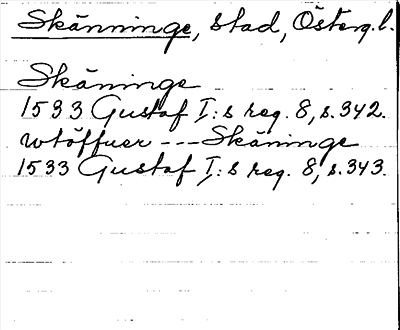 Skänninge, stad, Österg.l.
Skäninge
1533 Gustaf I:s reg. 8, s.342.
wtöffuer --- Skäninge
1533 Gustaf I:s reg. 8, s.343.